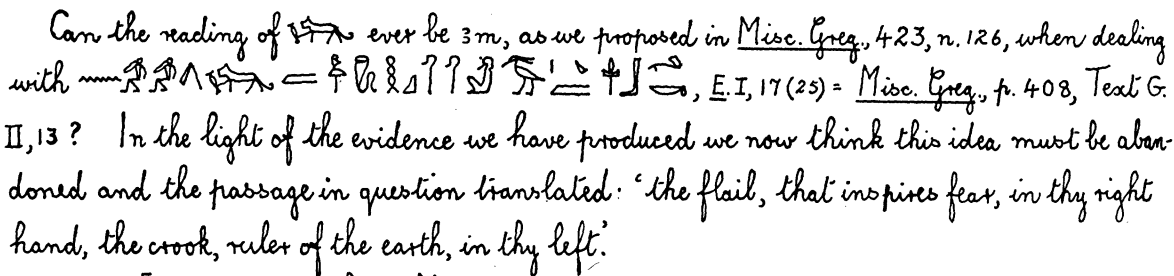 Can the reading of ever be 3m, as we proposed in Misc. Greg., 423, n. 126, when dealing
with , E. I, 17 (25) = Misc. Greg., p. 408, Text G.
II, 13 ? In the light of the evidence we have produced we now think this idea must be aban-
doned and the passage in question translated: ‘the flail, that inspires fear, in thy right
hand, the crook, ruler of the earth, in thy left.’